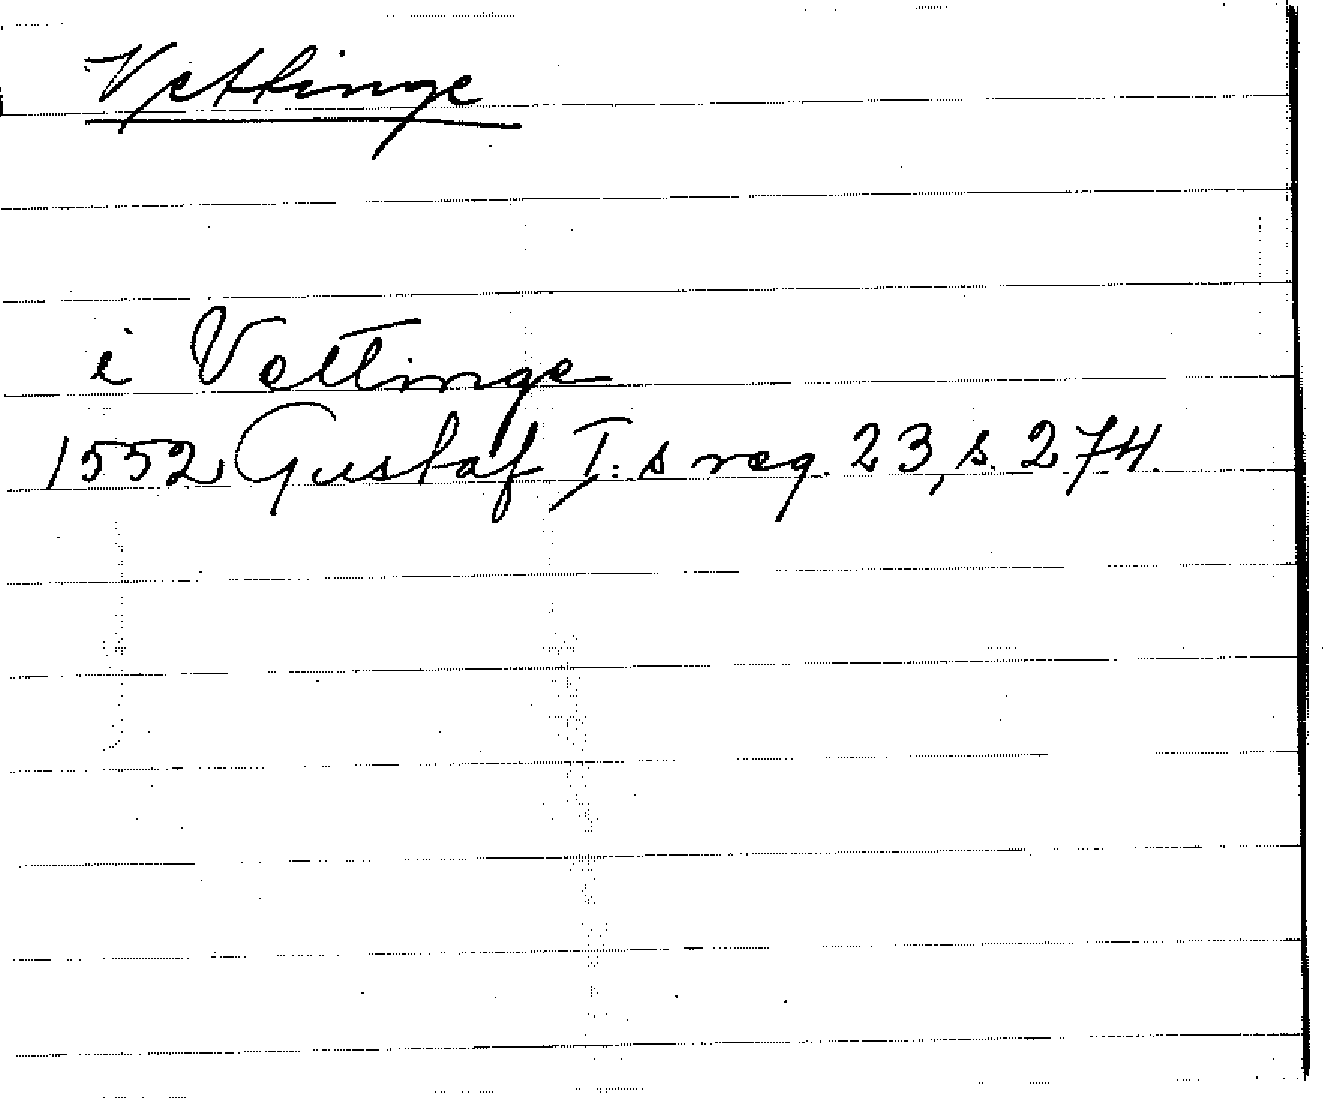 Vettinge
i Vettinge
1552 Gustaf I:s reg. 23, s. 274.